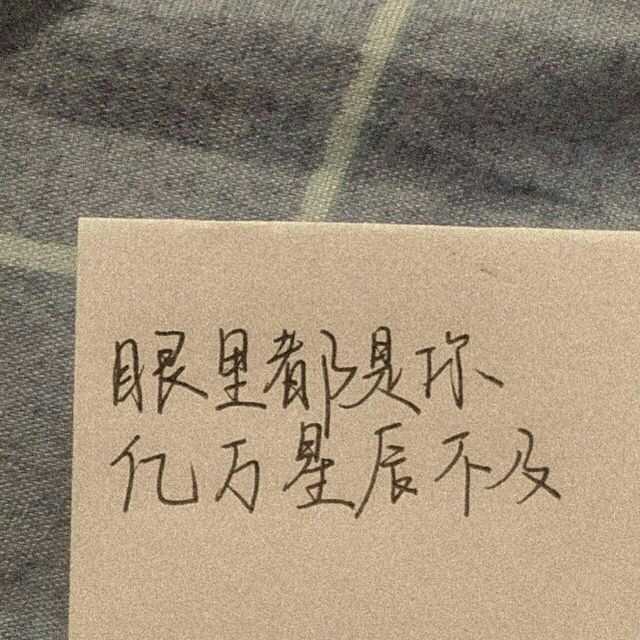 眼里都是你
亿万星辰不及